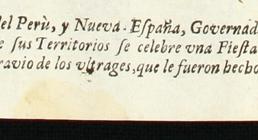 del Perù, y Nueva-España, Governad
e sus Territorios se celebre vna Fiesta
ravio de los vltrages, que le fueron hecho